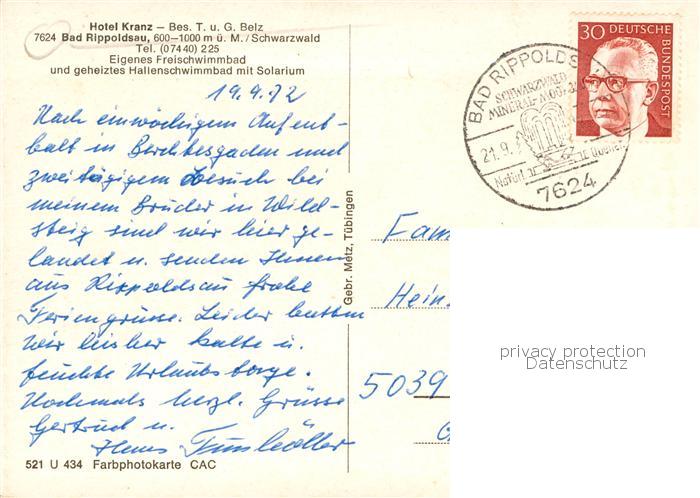 Hotel Kranz – Bes. T. u. G. Belz
7624 Bad Rippoldsau, 600–1000 m ü. M./Schwarzwald
Tel. (07440) 225
Eigenes Freischwimmbad
und geheiztes Hallenschwimmbad mit Solarium
19.9.72
Nach einwöchigem Aufent-
halt in Berchtesgaden und
zweitägigem Besuch bei
meinem Bruder in Wild-
steig sind wir hier ge-
landet u. senden Ihnen
aus Rippoldsau frohe
Feriengrüsse. Leider hatten
wir bisher kalte u.
feuchte Urlaubstage.
Nochmals herzl. Grüsse
Gertrud u.
Hans
521 U 434 Farbphotokarte CAC
Gebr. Metz, Tübingen
30 DEUTSCHE
BUNDESPOST
BAD RIPPOLDS
SCHWARZWALD
MINERAL-MOOR
21.9.
Quelle
7624
Fam
Hein
5039
privacy protection
Datenschutz